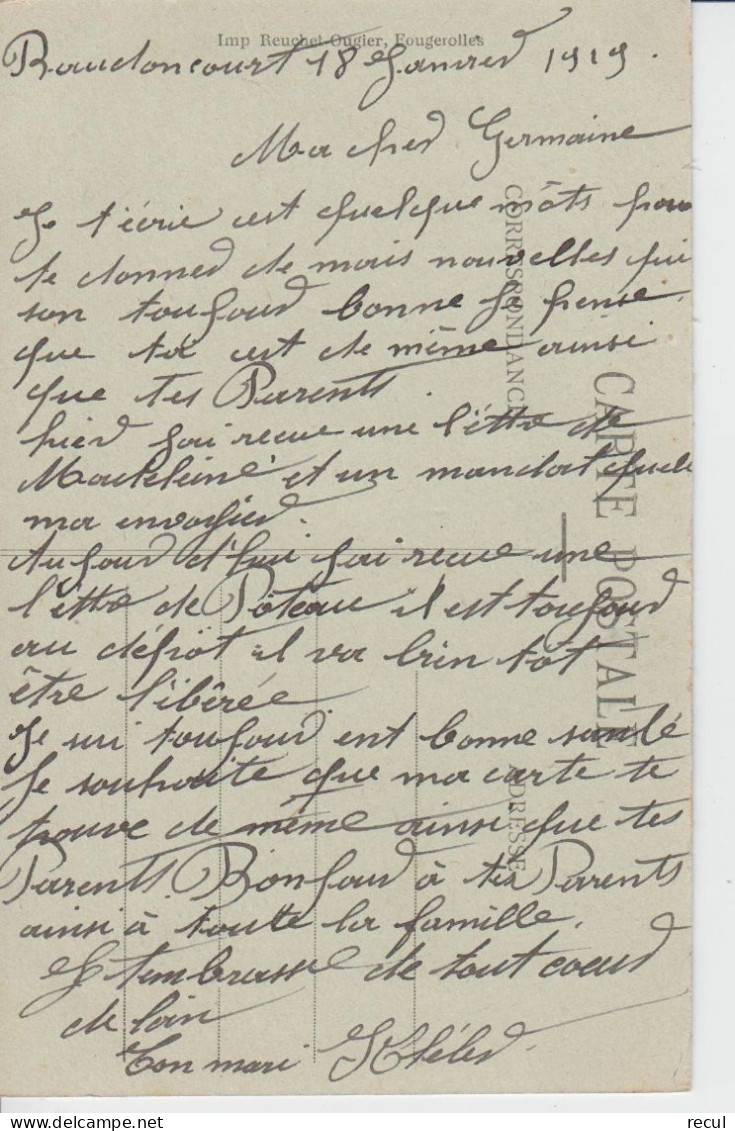 Imp Reuchet-Ougier, Fougerolles
Baudoncourt 18 Janvier 1919.
Ma cher Germaine
Je t'écrie cest quelque môts pour
te donner de mais nouvelles qui
son toujour bonne Je pense
que toi est de même ainsi
que tes Parents.
hier j'ai recue une l'éttre de
Madeleine et un mandat quele
ma envoyier.
Aujour d'hui j'ai recue une
l'éttre de Pôteau il est toujour
au dépôt il va brin tôt
être l'ibérée.
Je sui toujour ent bonne santé
Je souhaite que ma carte te
trouve de même ainsi que tes
Parents. Bonjour à tes Parents
ainsi à toute la famille.
Je tembrasse de tout coeur
de loin
Ton mari Kléber.
CORRESPONDANCE
CARTE POSTALE
ADRESSE
recul